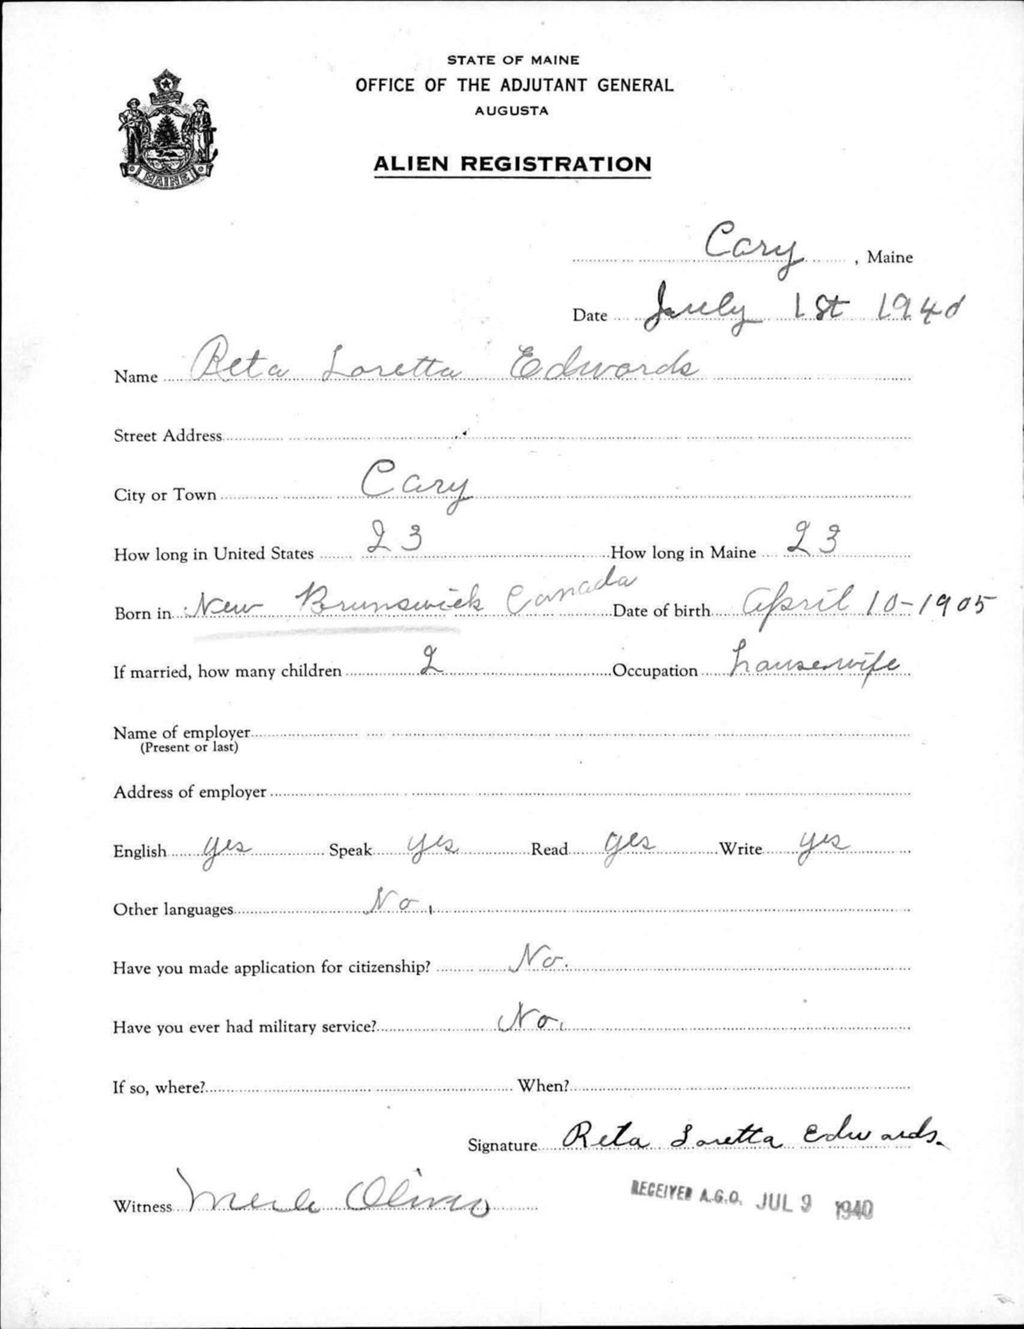 STATE OF MAINE
OFFICE OF THE ADJUTANT GENERAL
AUGUSTA
ALIEN REGISTRATION
MAINE
Cary, Maine
Date July 1st 1940
Name Reta Loretta Edwards
Street Address
City or Town Cary
How long in United States 23 How long in Maine 23
Born in New Brunswick Canada Date of birth April 10-1905
If married, how many children 2 Occupation housewife
Name of employer
(Present or last)
Address of employer
English yes Speak yes Read yes Write yes
Other languages No.
Have you made application for citizenship? No.
Have you ever had military service? No.
If so, where? When?
Signature Reta Loretta Edwards.
Witness Merle
RECEIVED A.G.O. JUL 9 1940